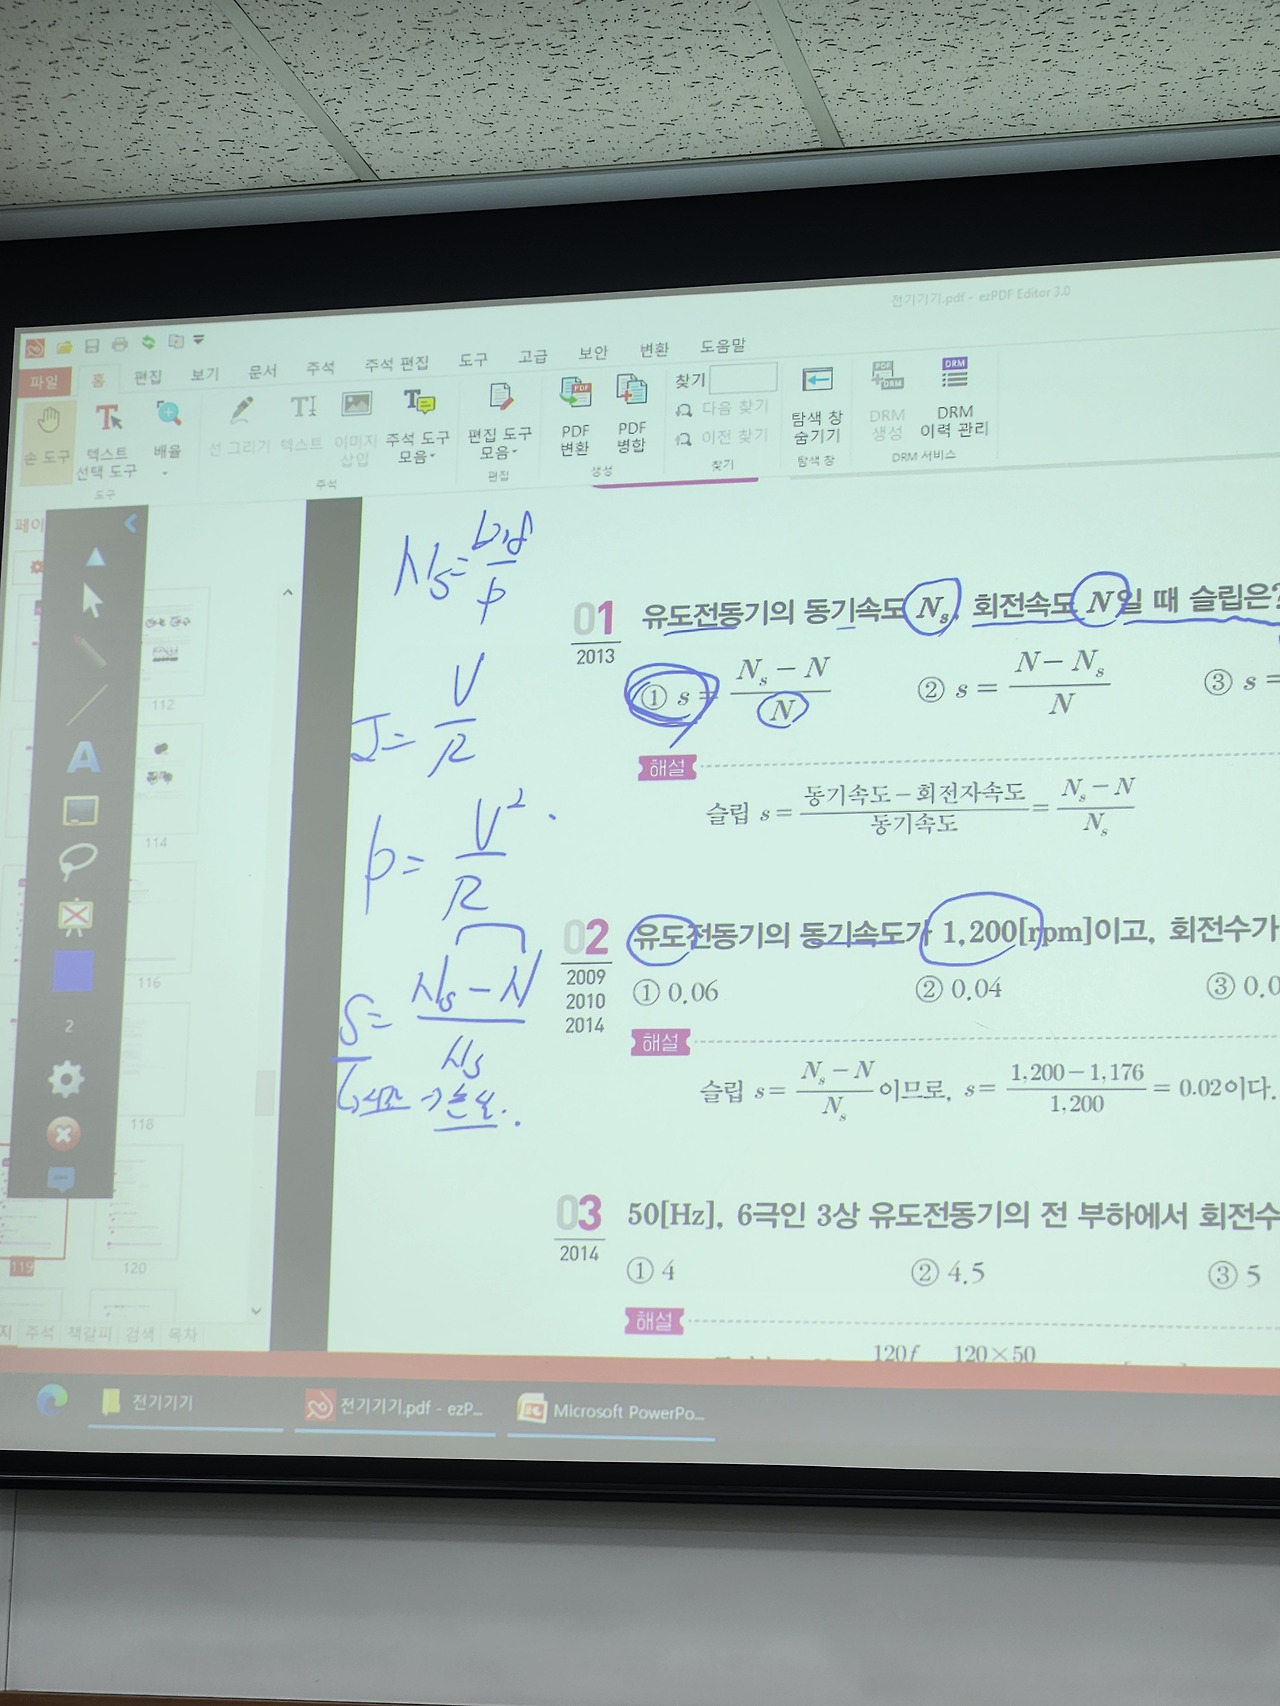 전기기기.pdf - ezPDF Editor 3.0
파일 홈 편집 보기 문서 주석 주석 편집 도구 고급 보안 변환 도움말
손 도구
텍스트 선택 도구
배율
도구
선 그리기
텍스트
이미지 삽입
주석 도구 모음
주석
편집 도구 모음
편집
PDF 변환
PDF 병합
생성
찾기
다음 찾기
이전 찾기
찾기
탐색 창 숨기기
탐색 창
DRM 생성
DRM 이력 관리
DRM 서비스
페이
2
112
114
116
118
119
120
지 주석 책갈피 검색 목차
Ns=
P
I= V/R
P= V²/R
S= Ns-N/Ns
01
2013
유도전동기의 동기속도 Ns, 회전속도 N일 때 슬립은?
① s= Ns-N/N
② s= N-Ns/N
③ s=
해설
슬립 s= 동기속도-회전자속도/동기속도 = Ns-N/Ns
02
2009
2010
2014
유도전동기의 동기속도가 1,200[rpm]이고, 회전수가
① 0.06
② 0.04
③ 0.0
해설
슬립 s= Ns-N/Ns 이므로, s= 1,200-1,176/1,200 = 0.02이다.
03
2014
50[Hz], 6극인 3상 유도전동기의 전 부하에서 회전수
① 4
② 4.5
③ 5
해설
120f 120×50
전기기기
전기기기.pdf - ezP...
Microsoft PowerPo...